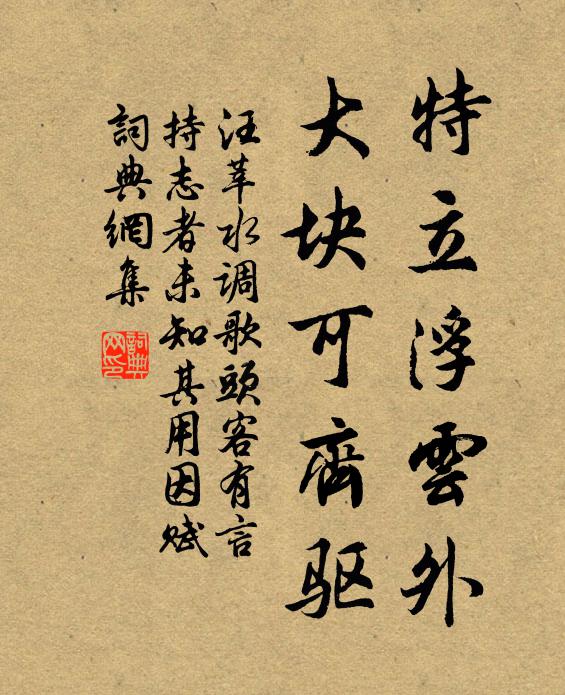 特立浮雲外
大块可齊驱
汪莘水调歌頭客有言
持志者未知其用因赋
詞典網集
詞典网印